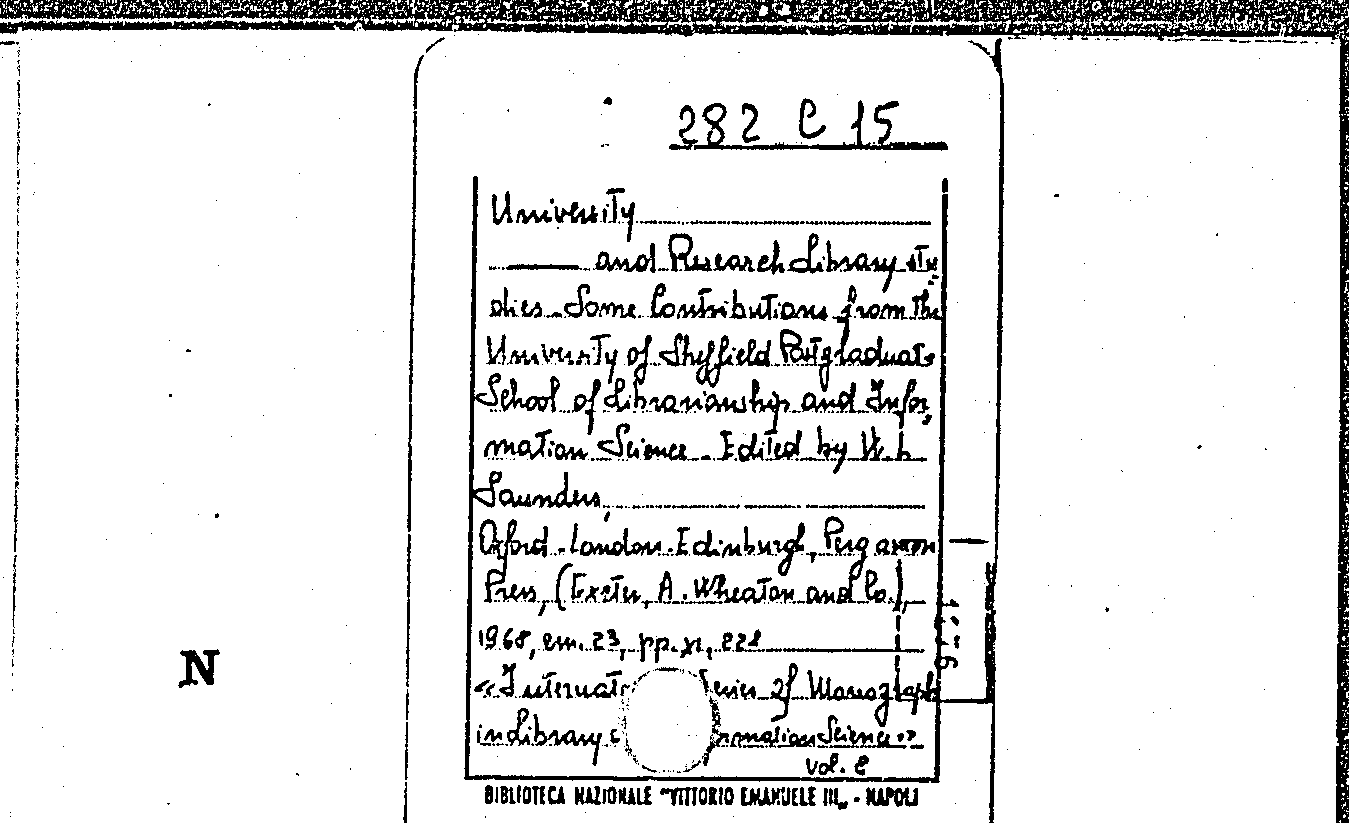 282 C 15
University
and Research Library stu
dies. Some Contributions from the
University of Sheffield Postgraduate
School of Librarianship and Infor
mation Science. Edited by W. L.
Saunders,
Oxford-London-Edinburgh, Pergamon
Press, (Exeter, A. Wheaton and Co.),
1968, cm. 23, pp. XI, 228
N
«Internat Series of Monographs
in Library rmation Science»
vol.
BIBLIOTECA NAZIONALE "VITTORIO EMANUELE III„ - NAPOLI